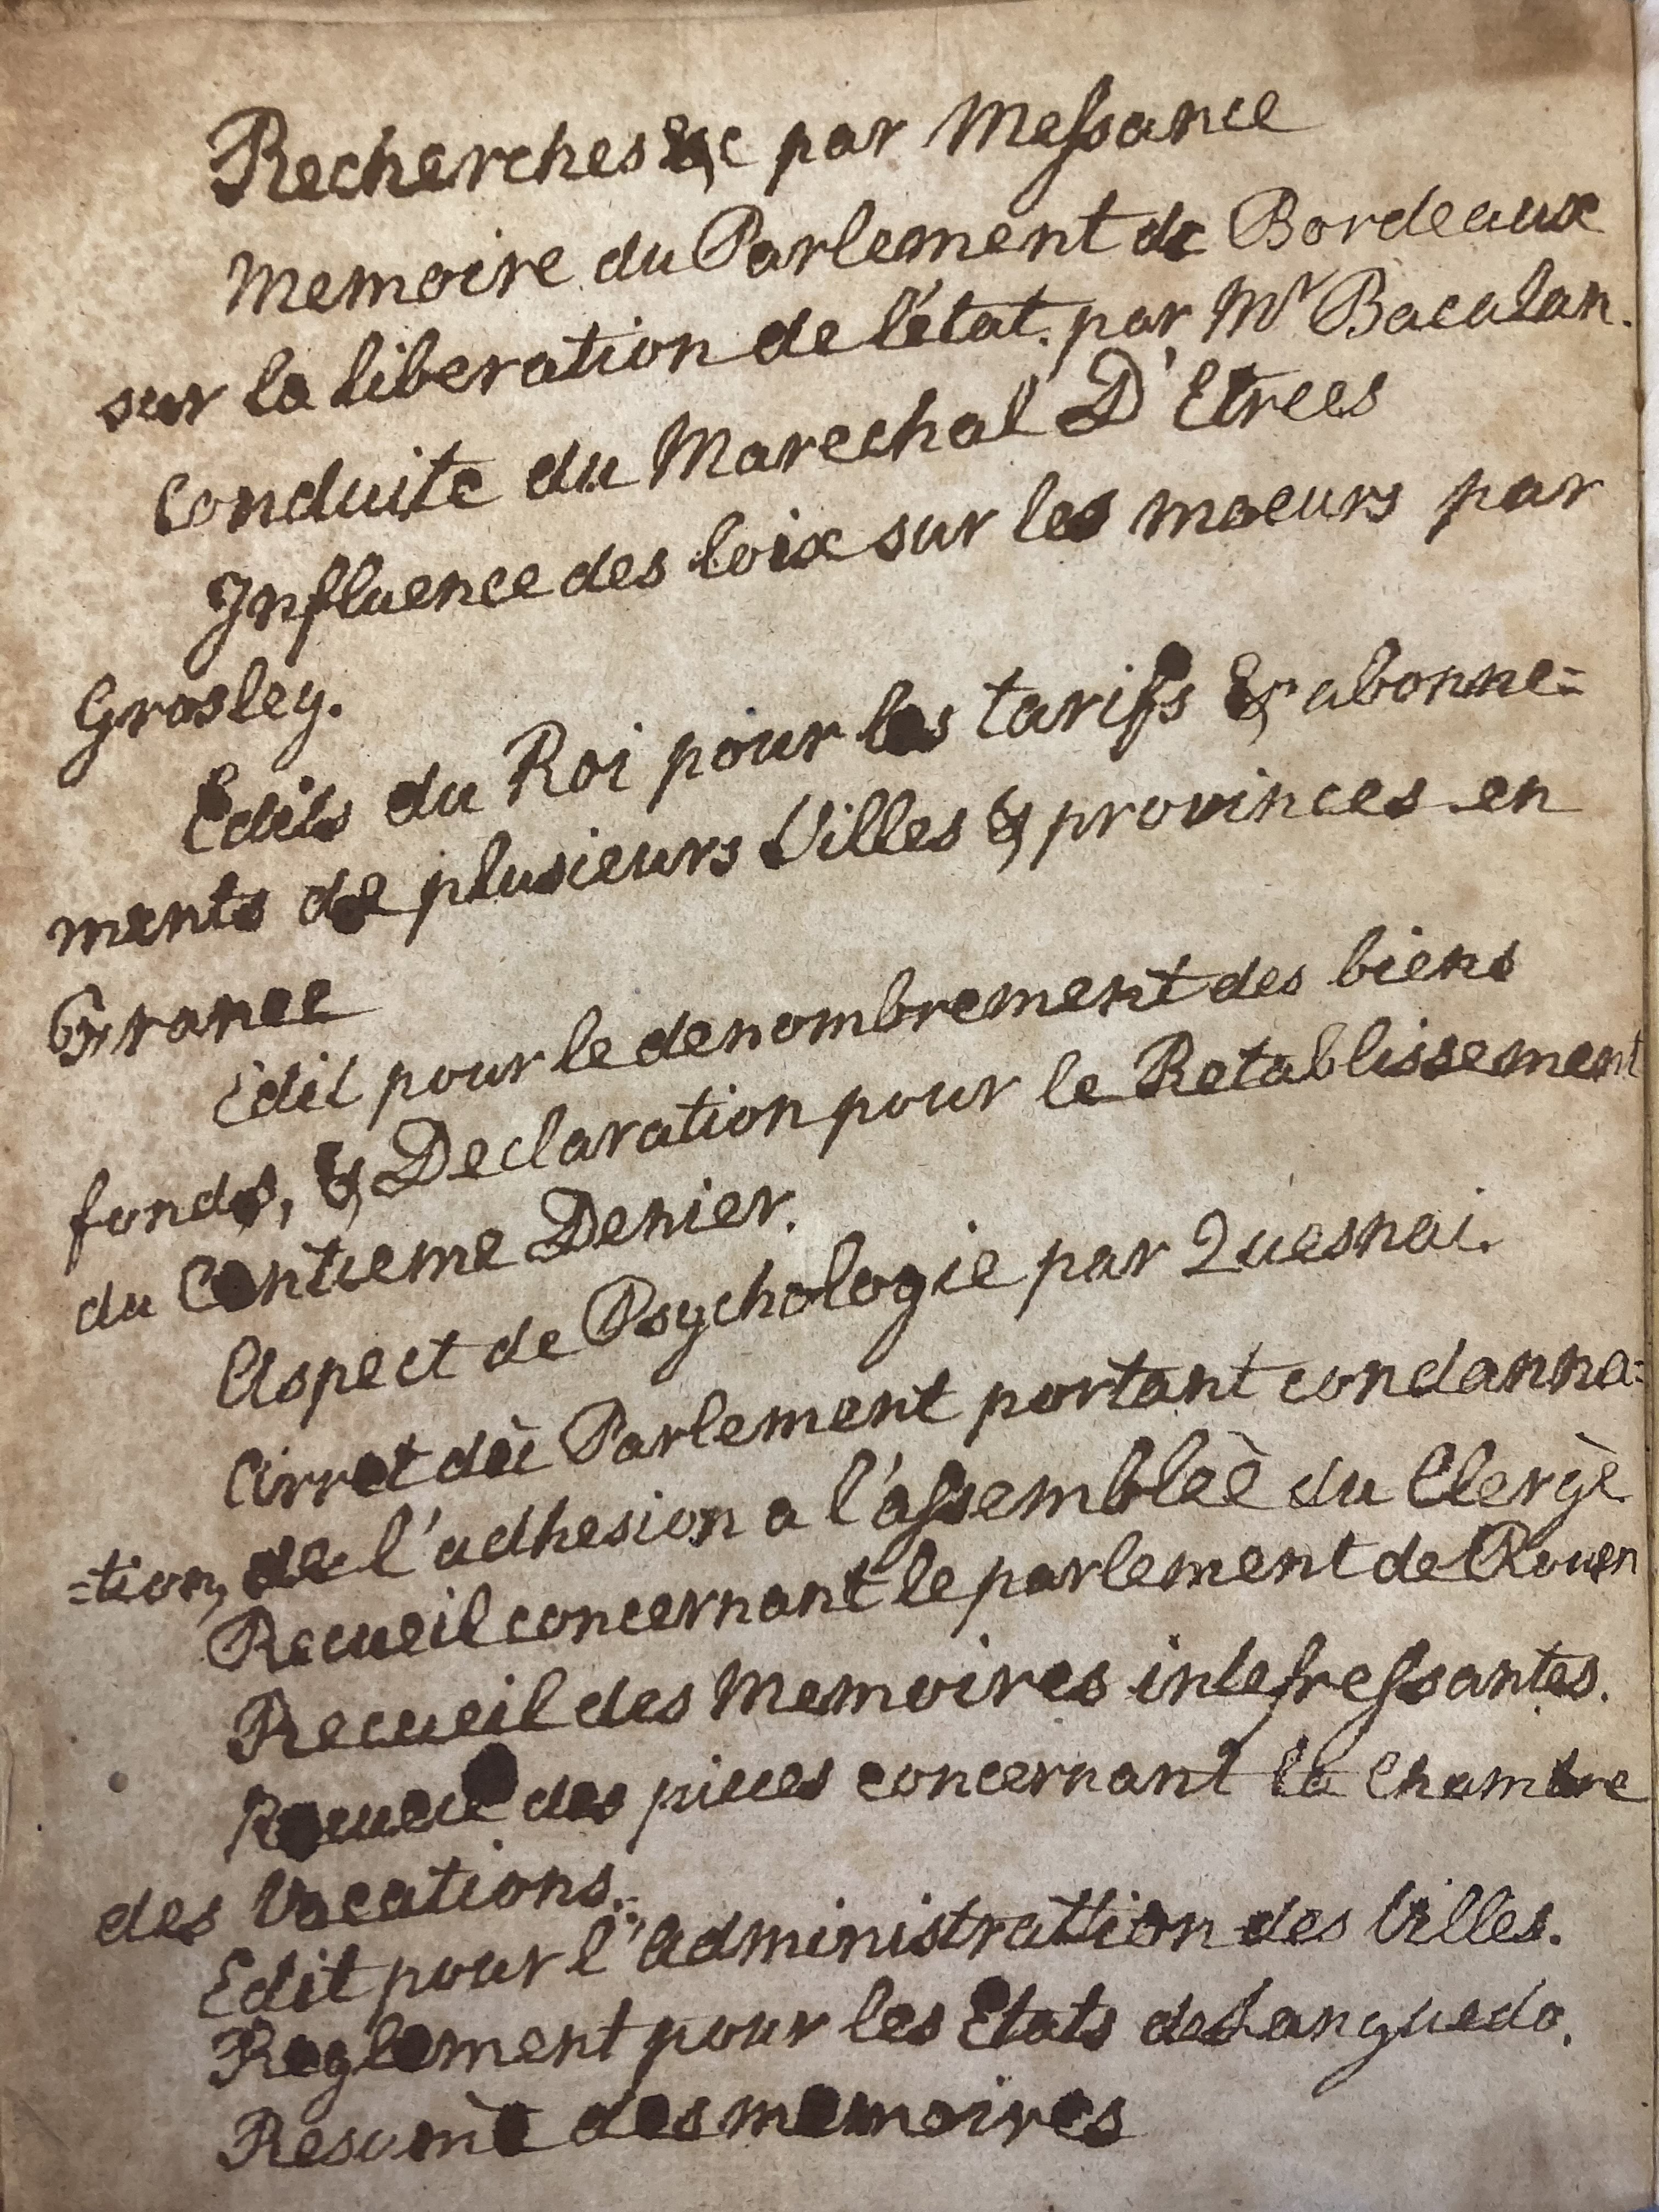 Recherches &c par Messance
Memoire du Parlement de Bordeaux
sur la liberation de l'état. par Mr Bacalan.
Conduite du Marechal D'Etrees
Influence des loix sur les moeurs par
Grosley.
Edits du Roi pour les tarifs & abonne=
ments de plusieurs Villes & provinces en
France
Edit pour le denombrement des biens
fonds, & Declaration pour le Retablissement
du Centieme Denier.
Aspect de Psychologie par Quesnai.
Arret du Parlement portant condanna=
=tion, de l'adhesion a l'assemblèe du Clergè
Recueil concernant le parlement de Rouen
Recueil des Memoires interessantes.
Recueil des pieces concernant la Chambre
des Vacations.
Edit pour l'administrattion des Villes.
Reglement pour les Etats de Languedo.
Resumè des memoires